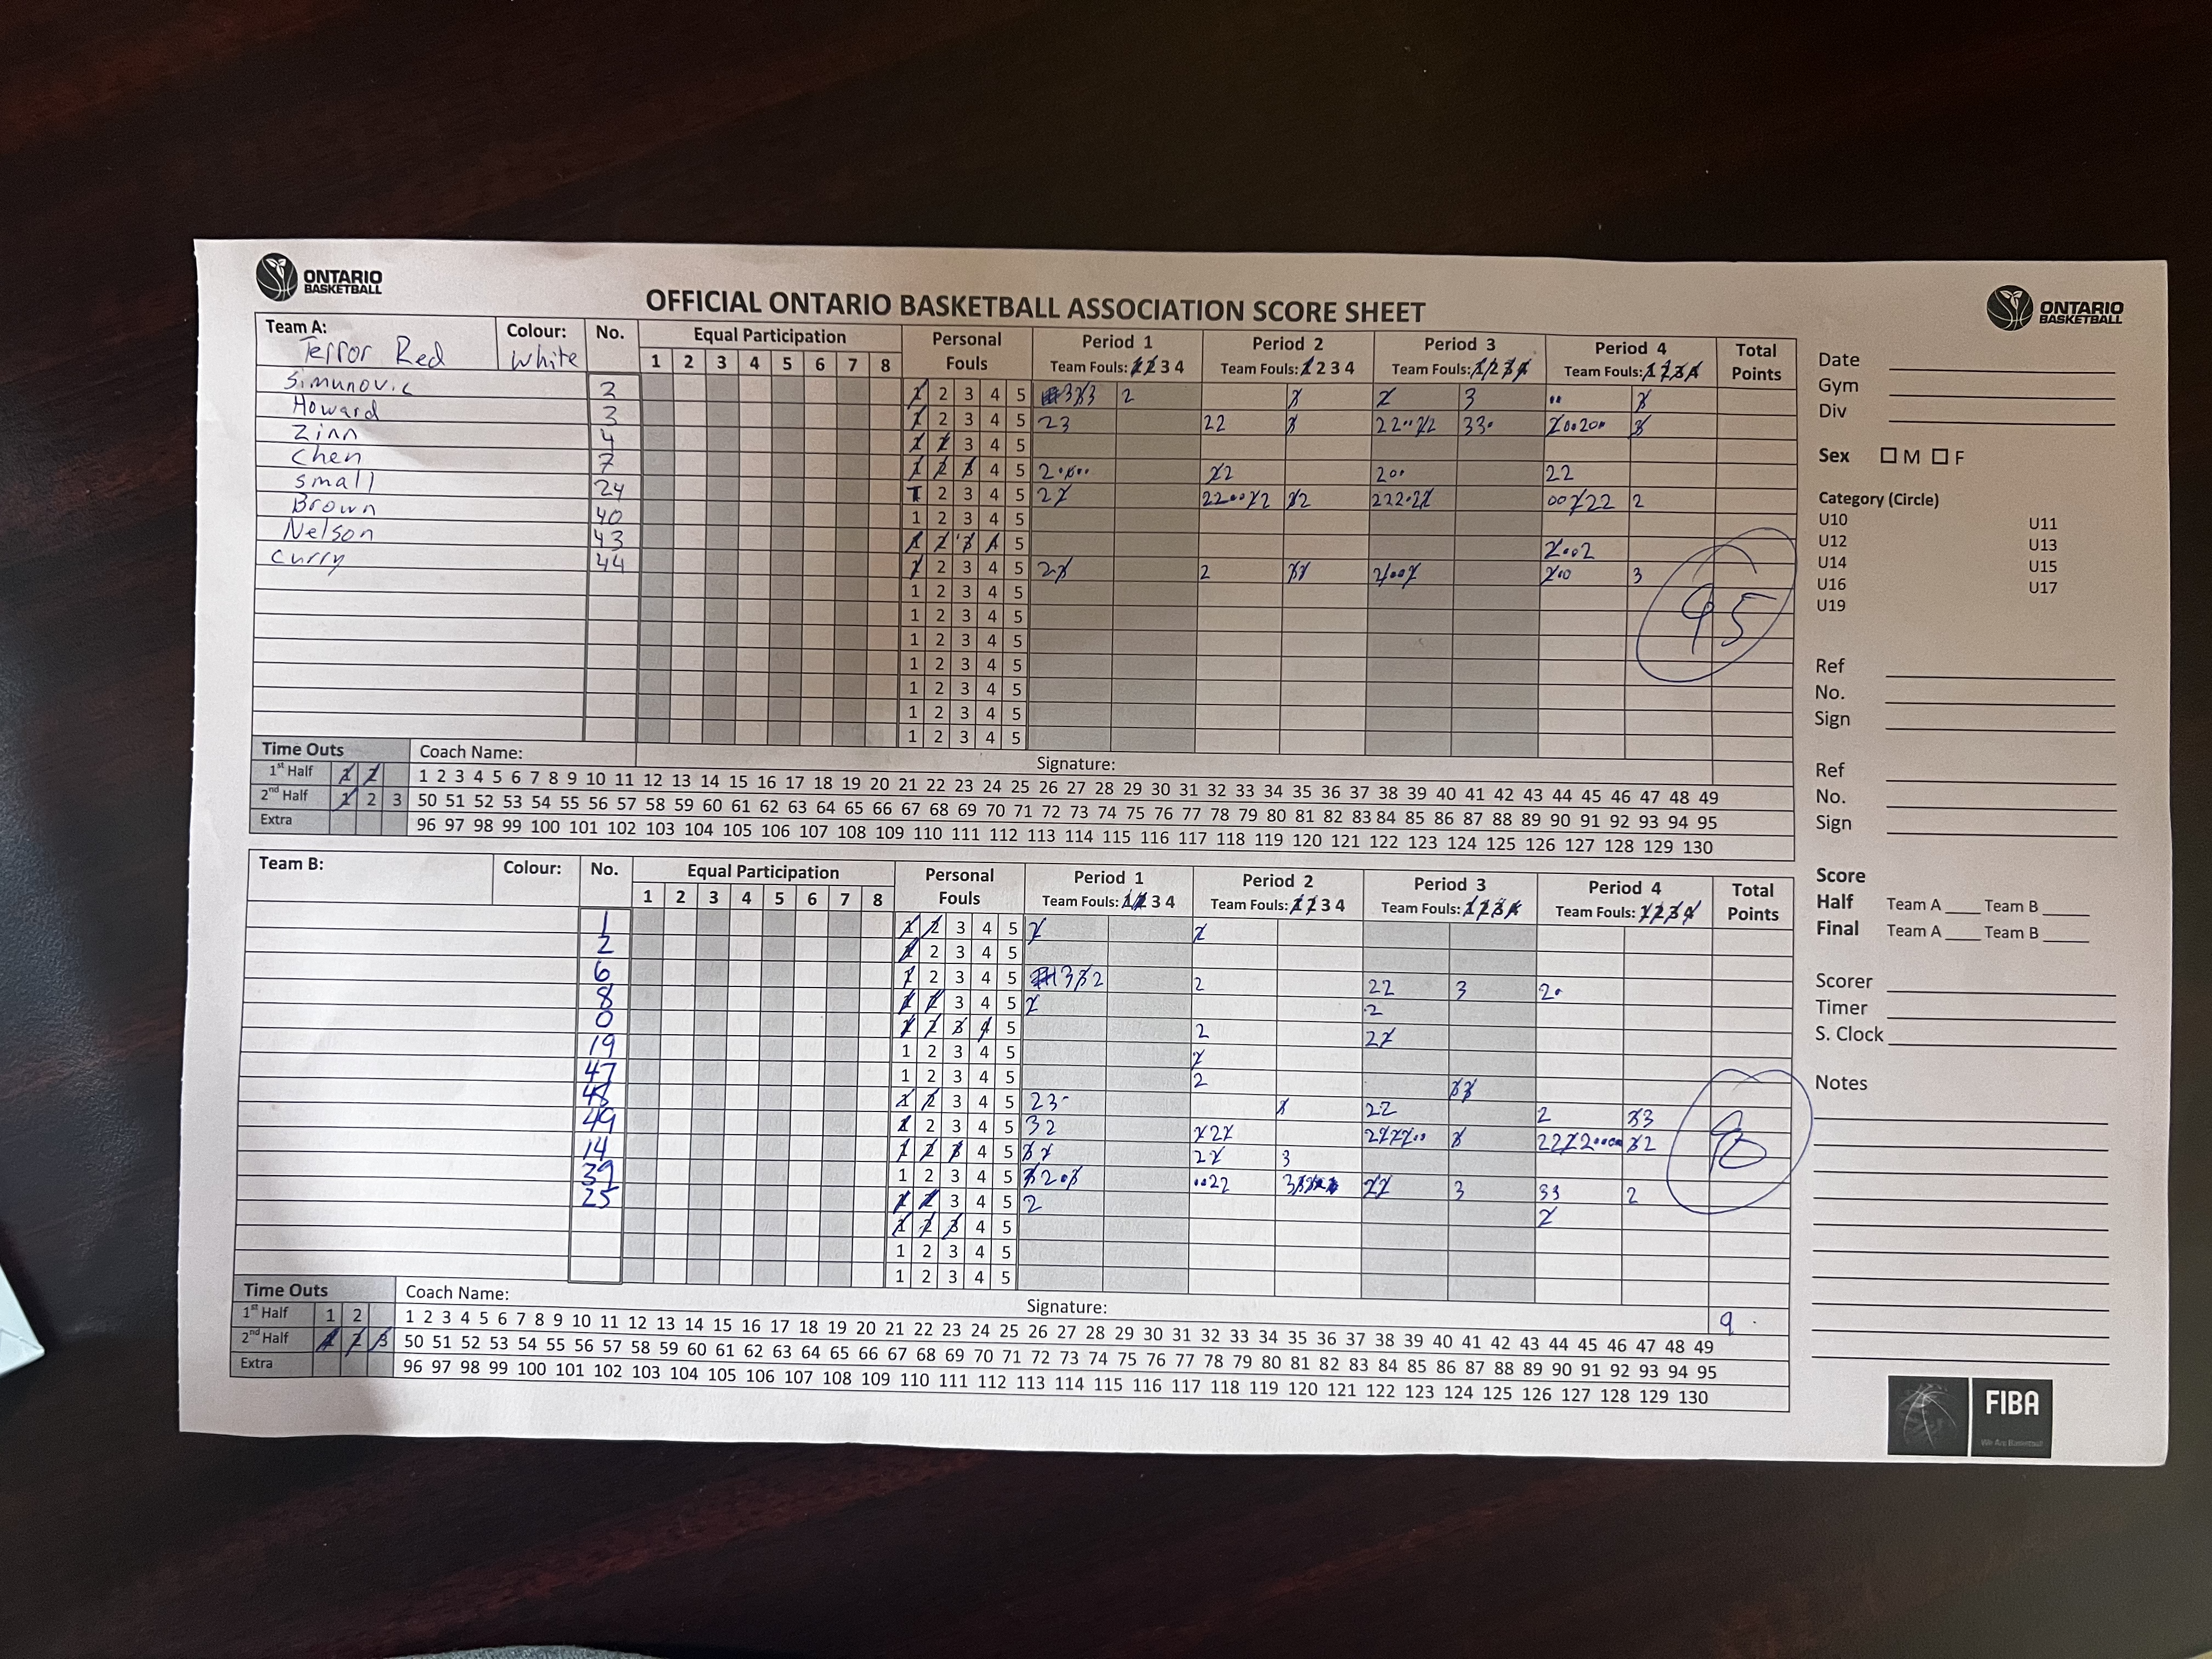 ONTARIO
BASKETBALL
OFFICIAL ONTARIO BASKETBALL ASSOCIATION SCORE SHEET
ONTARIO
BASKETBALL
Team A: Terror Red
Colour: white
No.
Equal Participation
1 2 3 4 5 6 7 8
Personal Fouls
Period 1
Team Fouls: 1 2 3 4
Period 2
Team Fouls: 1 2 3 4
Period 3
Team Fouls: 1 2 3 4
Period 4
Team Fouls: 1 2 3 4
Total Points
Simunovic 2 1 2 3 4 5
Howard 3 1 2 3 4 5 23 22
Zinn 4 1 2 3 4 5
Chen 7 1 2 3 4 5 22
Small 24 1 2 3 4 5
Brown 40 1 2 3 4 5
Nelson 43 1 2 3 4 5
Curry 44 1 2 3 4 5 2 3
1 2 3 4 5
1 2 3 4 5
1 2 3 4 5
1 2 3 4 5
1 2 3 4 5
1 2 3 4 5
1 2 3 4 5
95
Time Outs
Coach Name:
Signature:
1st Half 1 2
2nd Half 1 2 3
Extra
1 2 3 4 5 6 7 8 9 10 11 12 13 14 15 16 17 18 19 20 21 22 23 24 25 26 27 28 29 30 31 32 33 34 35 36 37 38 39 40 41 42 43 44 45 46 47 48 49
50 51 52 53 54 55 56 57 58 59 60 61 62 63 64 65 66 67 68 69 70 71 72 73 74 75 76 77 78 79 80 81 82 83 84 85 86 87 88 89 90 91 92 93 94 95
96 97 98 99 100 101 102 103 104 105 106 107 108 109 110 111 112 113 114 115 116 117 118 119 120 121 122 123 124 125 126 127 128 129 130
Team B:
Colour:
No.
Equal Participation
1 2 3 4 5 6 7 8
Personal Fouls
Period 1
Team Fouls: 1 2 3 4
Period 2
Team Fouls: 1 2 3 4
Period 3
Team Fouls: 1 2 3 4
Period 4
Team Fouls: 1 2 3 4
Total Points
1 1 2 3 4 5
2 1 2 3 4 5
6 1 2 3 4 5 2 22 3
8 1 2 3 4 5 2
0 1 2 3 4 5 2
19 1 2 3 4 5
47 1 2 3 4 5 2
1 2 3 4 5 22 2
49 1 2 3 4 5 32
14 1 2 3 4 5 3
39 1 2 3 4 5 3 33 2
25 1 2 3 4 5 2
1 2 3 4 5
1 2 3 4 5
1 2 3 4 5
Time Outs
Coach Name:
Signature:
9
1st Half 1 2
2nd Half 1 2 3
Extra
1 2 3 4 5 6 7 8 9 10 11 12 13 14 15 16 17 18 19 20 21 22 23 24 25 26 27 28 29 30 31 32 33 34 35 36 37 38 39 40 41 42 43 44 45 46 47 48 49
50 51 52 53 54 55 56 57 58 59 60 61 62 63 64 65 66 67 68 69 70 71 72 73 74 75 76 77 78 79 80 81 82 83 84 85 86 87 88 89 90 91 92 93 94 95
96 97 98 99 100 101 102 103 104 105 106 107 108 109 110 111 112 113 114 115 116 117 118 119 120 121 122 123 124 125 126 127 128 129 130
Date
Gym
Div
Sex M F
Category (Circle)
U10 U11
U12 U13
U14 U15
U16 U17
U19
Ref
No.
Sign
Ref
No.
Sign
Score
Half Team A ____ Team B ____
Final Team A ____ Team B ____
Scorer
Timer
S. Clock
Notes
FIBA
We Are Basketball